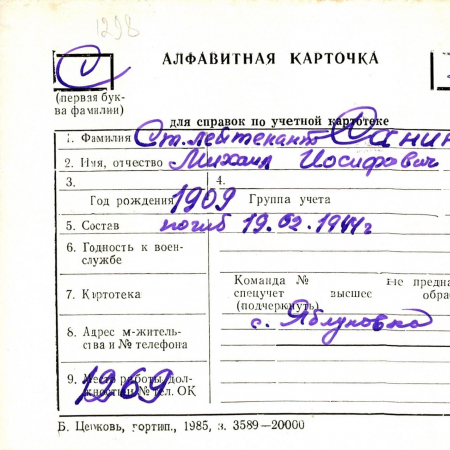 1298
АЛФАВИТНАЯ КАРТОЧКА
(первая бук-
ва фамилии)
для справок по учетной картотеке
1. Фамилия Ст. лейтенант
2. Имя, отчество Михаил Иосифович
3. 4.
Год рождения 1909 Группа учета
5. Состав погиб 19.02.1944г
6. Годность к воен-
службе
7. Картотека
Команда №
спецучет высшее
(подчеркнуть)
8. Адрес м-житель-
ства и № телефона
с. Яблуновка
9. Место работы, дол-
жности и № тел. ОК
1269
Б. Церковь, гортип., 1985, з. 3589—20000